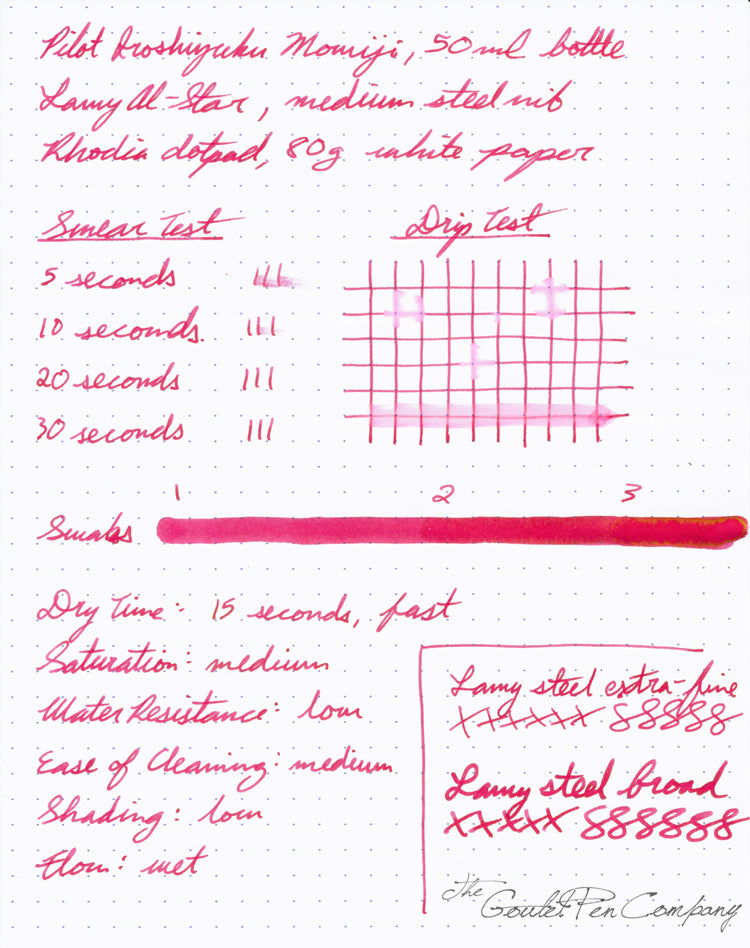 Pilot Iroshizuku Momiji, 50ml bottle
Lamy Al-Star, medium steel nib
Rhodia dotpad, 80g white paper
Smear Test
Drip Test
5 seconds III
10 seconds. III
20 seconds III
30 seconds III
1 2 3
Swabs
Dry Time: 15 seconds, fast
Saturation: medium
Water Resistance: low
Ease of Cleaning: medium
Shading: low
Flow: wet
Lamy steel extra-fine
xxxxxx 888888
Lamy steel broad
xxxxx 888888
The Goulet Pen Company